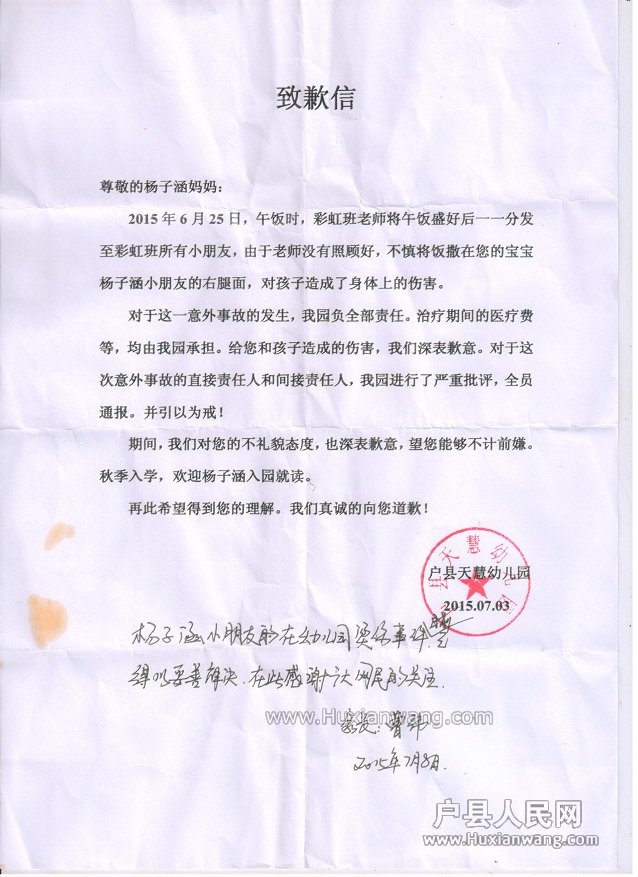 致歉信
尊敬的杨子涵妈妈：
2015 年 6 月 25 日，午饭时，彩虹班老师将午饭盛好后一一分发
至彩虹班所有小朋友，由于老师没有照顾好，不慎将饭撒在您的宝宝
杨子涵小朋友的右腿面，对孩子造成了身体上的伤害。
对于这一意外事故的发生，我园负全部责任。治疗期间的医疗费
等，均由我园承担。给您和孩子造成的伤害，我们深表歉意。对于这
次意外事故的直接责任人和间接责任人，我园进行了严重批评，全员
通报。并引以为戒！
期间，我们对您的不礼貌态度，也深表歉意，望您能够不计前嫌。
秋季入学，欢迎杨子涵入园就读。
再此希望得到您的理解。我们真诚的向您道歉！
户县天慧幼儿园
2015.07.03
户县天慧幼儿园
杨子涵小朋友的在幼儿园烫伤事
得以妥善解决.在此感谢广大网民的关注.
www.Huxianwang.com
家长:曾
2015年7月8日.
户县人民网
www.Huxianwang.com